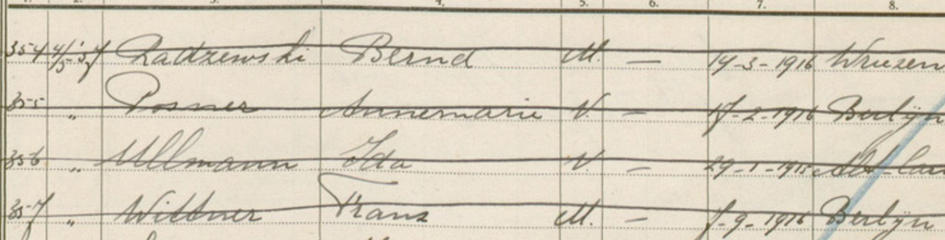 4. 5. 6. 7. 8.
354 4/5-'37 Radzewski Bernd M. — 19-3-1916 Wriezen
355 " Posner Annemarie V. — 17-2-1916 Berlijn
356 " Ullmann Ida V. — 29-1-1915
357 " Wittner Franz M. — 7-9-1916 Berlijn